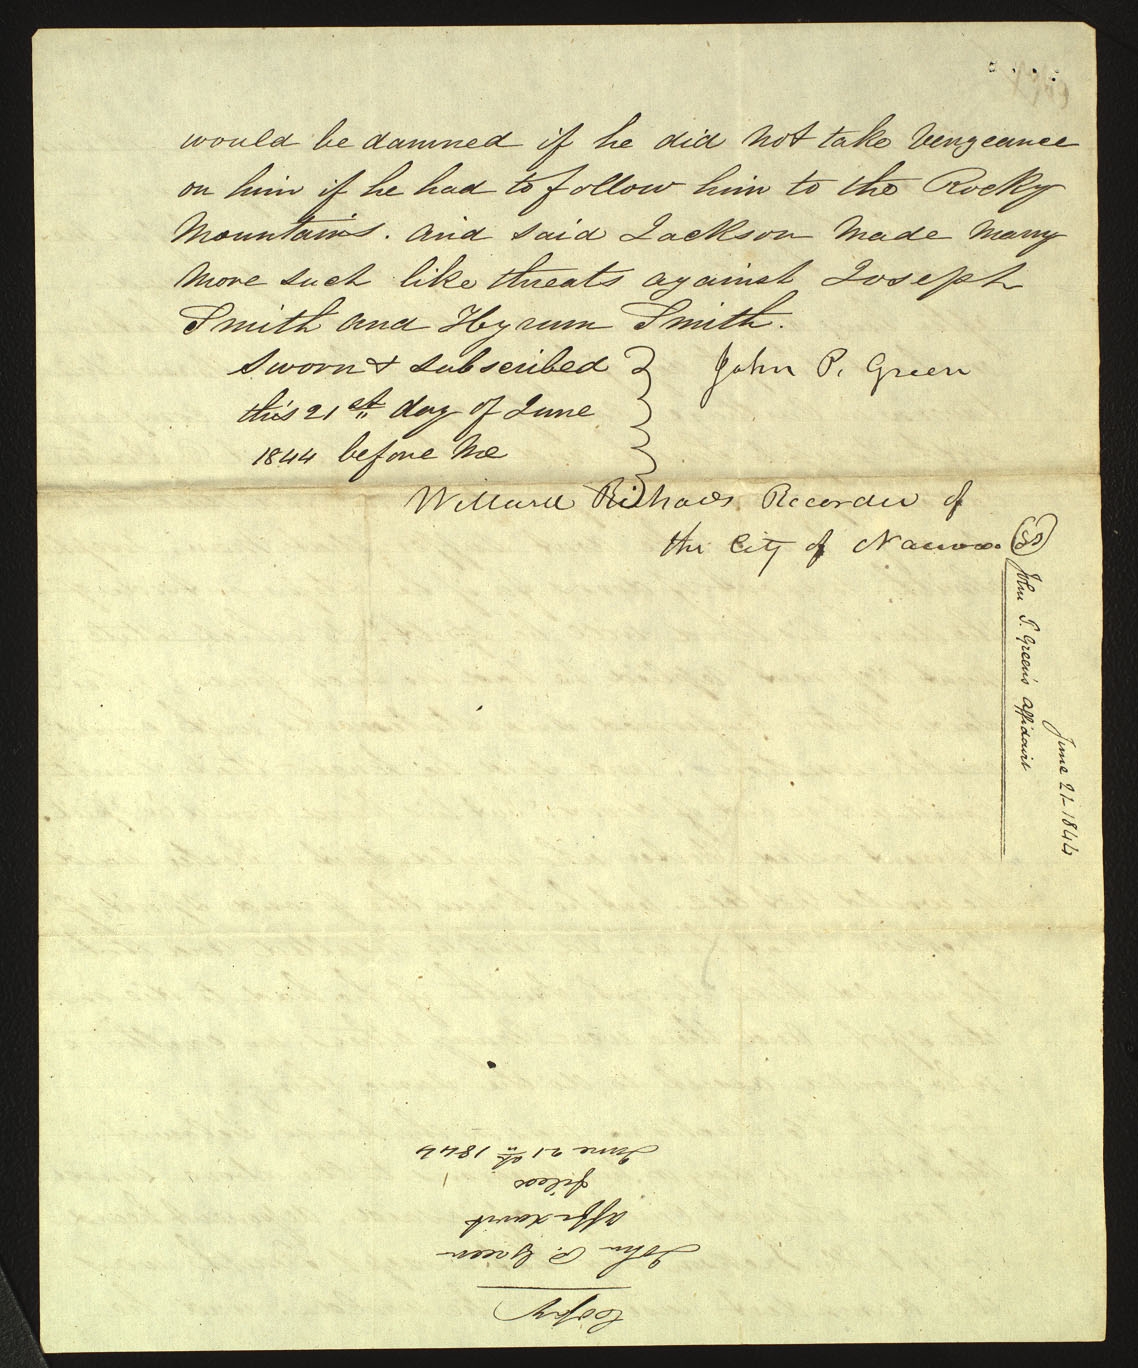 would be damned if he did not take Vengeance
on him if he had to follow him to the Rocky
Mountains. and said Jackson made many
more such like threats against Joseph
Smith and Hyrum Smith.
Sworn & subscribed
this 21st day of June
1844 before me
John P. Green
Willard Richards Recorder of
the City of Nauvoo
John P. Green's Affidavit
June 21- 1844
Copy
John P. Green
affidavit
filed
June 21st 1844